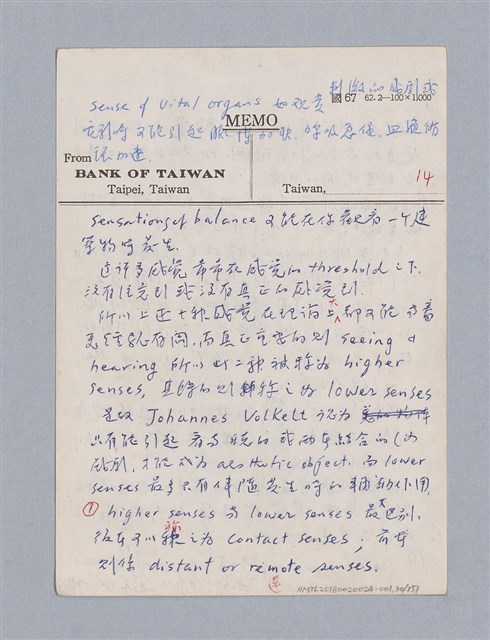 刺激的時刻或
國 67 62.2—100×1,000
sense of vital organs 如視覺
MEMO
可能引起脈搏加快,呼吸急促,血循
環加速.
From
BANK OF TAIWAN
Taipei, Taiwan
Taiwan,
14
sensations of balance 可能在你觀看一个建
築物時發生.
這許多感覺常常在感覺的 threshold 之下.
沒有注意到或沒有真正的感覺到.
所以上述十種感覺在理論上大都可能与審
美經驗有關,而真正重要的則 seeing &
hearing 所以此二種被称为 higher
senses, 其餘的則称之为 lower senses
是故 Johannes Volkelt 认为
只有能引起視的或两者結合的
感則,才能成为 aesthetic object. 而 lower
senses 最多只有伴隨發生時的輔助作用.
① higher senses 与 lower senses 最大区别.
後者可以称之为 contact senses; 前者
則係 distant or remote senses.
NMTL20180020024-001.30/151